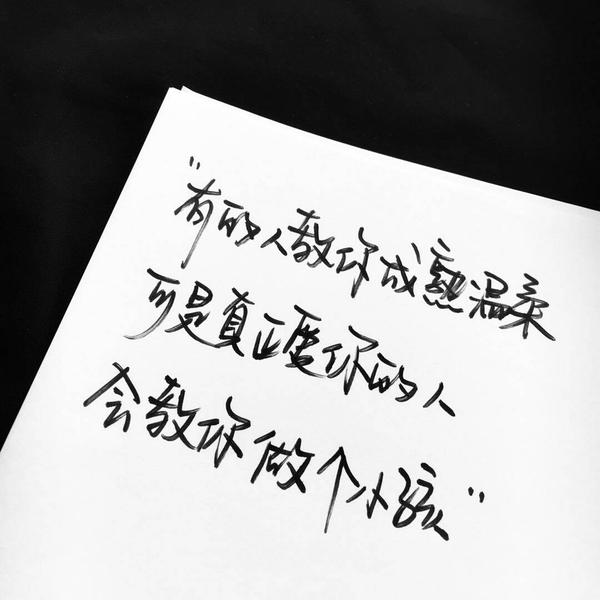 "有的人教你成熟温柔
可是真正爱你的人
会教你做个小孩"